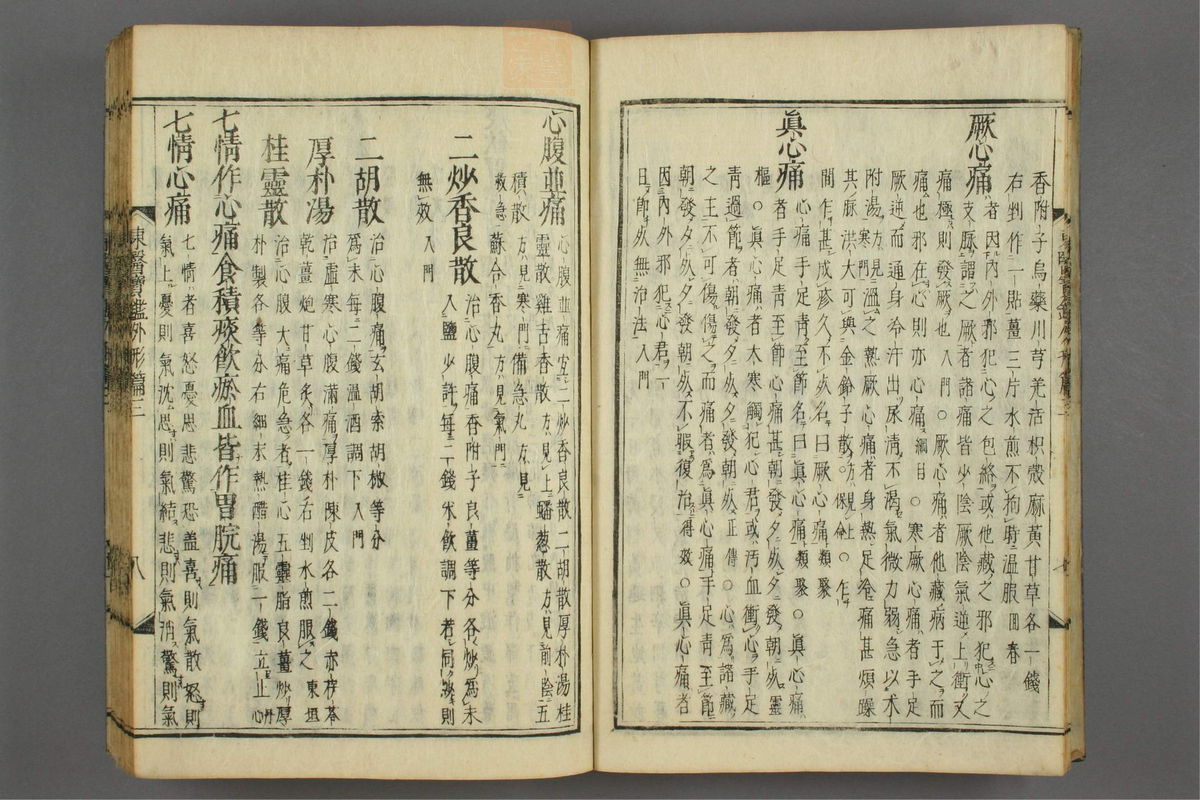 香附子烏藥川芎羌活枳殼麻黃甘草各一錢
右剉作一貼薑三片水煎不拘時温服回春
厥心痛者因內外邪犯心之包絡或他藏之邪犯心之
支脉謂之厥者諸痛皆少陰厥陰氣逆上衝又
痛極則發厥也入門○厥心痛者他藏病干之而
痛也邪在心則亦心痛綱目○寒厥心痛者手足
厥逆而通身冷汗出尿淸不渴氣微力弱急以术
附湯方見寒門溫之熱厥心痛者身熱足冷痛甚煩躁
其脉洪大可與金鈴子散方見上保命○乍
間乍甚成疹久不死名曰厥心痛類聚
眞心痛心痛手足靑至節名曰眞心痛類聚○眞心痛
者手足靑至節心痛甚朝發夕死夕發朝死靈
樞○眞心痛者大寒觸犯心君或汚血衝心手足
靑過節者朝發夕死夕發朝死正傳○心爲諸藏
之主不可傷傷之而痛者爲眞心痛手足靑至節
朝發夕死夕發朝死不暇復治得效○眞心痛者
因內外邪犯心君一
日卽死無治法入門
心腹並痛心腹並痛宜二炒香良散二胡散厚朴湯桂
靈散雞舌香散方見上蟠葱散方見前陰五
積散方見寒門備急丸方見
救急蘇合香丸方見氣門
二炒香良散治心腹痛香附子良薑等分各炒爲末
入鹽少許每二錢米飮調下若同炒則
無效入門
二胡散治心腹痛玄胡索胡椒等分
爲末每二錢溫酒調下入門
厚朴湯治虛寒心腹滿痛厚朴陳皮各二錢赤茯苓
乾薑炮甘草炙各一錢右剉水煎服之東垣
桂靈散治心腹大痛危急者桂心五靈脂良薑炒厚
朴製各等分右細末熱醋湯服一錢立止丹心
七情作心痛食積痰飮瘀血皆作胃脘痛
七情心痛七情者喜怒憂思悲驚恐盖喜則氣散怒則
氣上憂則氣沈思則氣結悲則氣消驚則氣
東醫寶鑑外形篇三
八